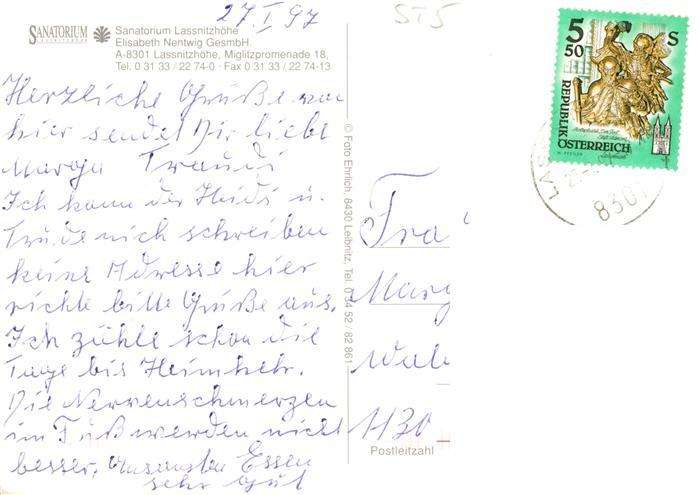 27.I 97
STS
SANATORIUM
LASSNITZHÖHE
Sanatorium Lassnitzhöhe
Elisabeth Nentwig GesmbH.
A-8301 Lassnitzhöhe, Miglitzpromenade 18,
Tel. 0 31 33 / 22 74-0 · Fax 0 31 33 / 22 74-13
Herzliche Grüße von
hier sendet Dir liebe
Marga Traudi
Ich kann der Heidi u.
Trude nich schreiben
keine Adresse hier
richte bitte Grüße aus.
Ich zähle schon die
Tage bis Heimkehr.
Die Nervenschmerzen
im Fuß werden nicht
besser, Essen
sehr gut
© Foto Ehrlich, 8430 Leibnitz, Tel. 0 34 52 / 82 861
5 50 S
REPUBLIK
ÖSTERREICH
8301
Fra
Marg
1130
Postleitzahl